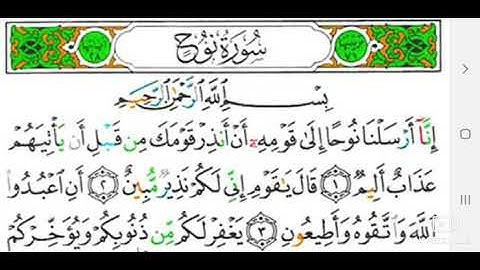 سُورَةُ نُوحٍ
بِسْمِ ٱللَّهِ ٱلرَّحْمَٰنِ ٱلرَّحِيمِ
إِنَّآ أَرْسَلْنَا نُوحًا إِلَىٰ قَوْمِهِۦٓ أَنْ أَنذِرْ قَوْمَكَ مِن قَبْلِ أَن يَأْتِيَهُمْ
عَذَابٌ أَلِيمٌ ١ قَالَ يَٰقَوْمِ إِنِّى لَكُمْ نَذِيرٌ مُّبِينٌ ٢ أَنِ ٱعْبُدُوا۟
ٱللَّهَ وَٱتَّقُوهُ وَأَطِيعُونِ ٣ يَغْفِرْ لَكُم مِّن ذُنُوبِكُمْ وَيُؤَخِّرْكُمْ